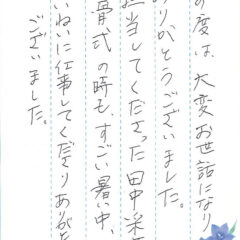 の度は、大変お世話になり
りがとうございました。
担当してくださった田中
骨式の時も、すごい暑い中、
いねいに仕事してくださりありがと
ございました。